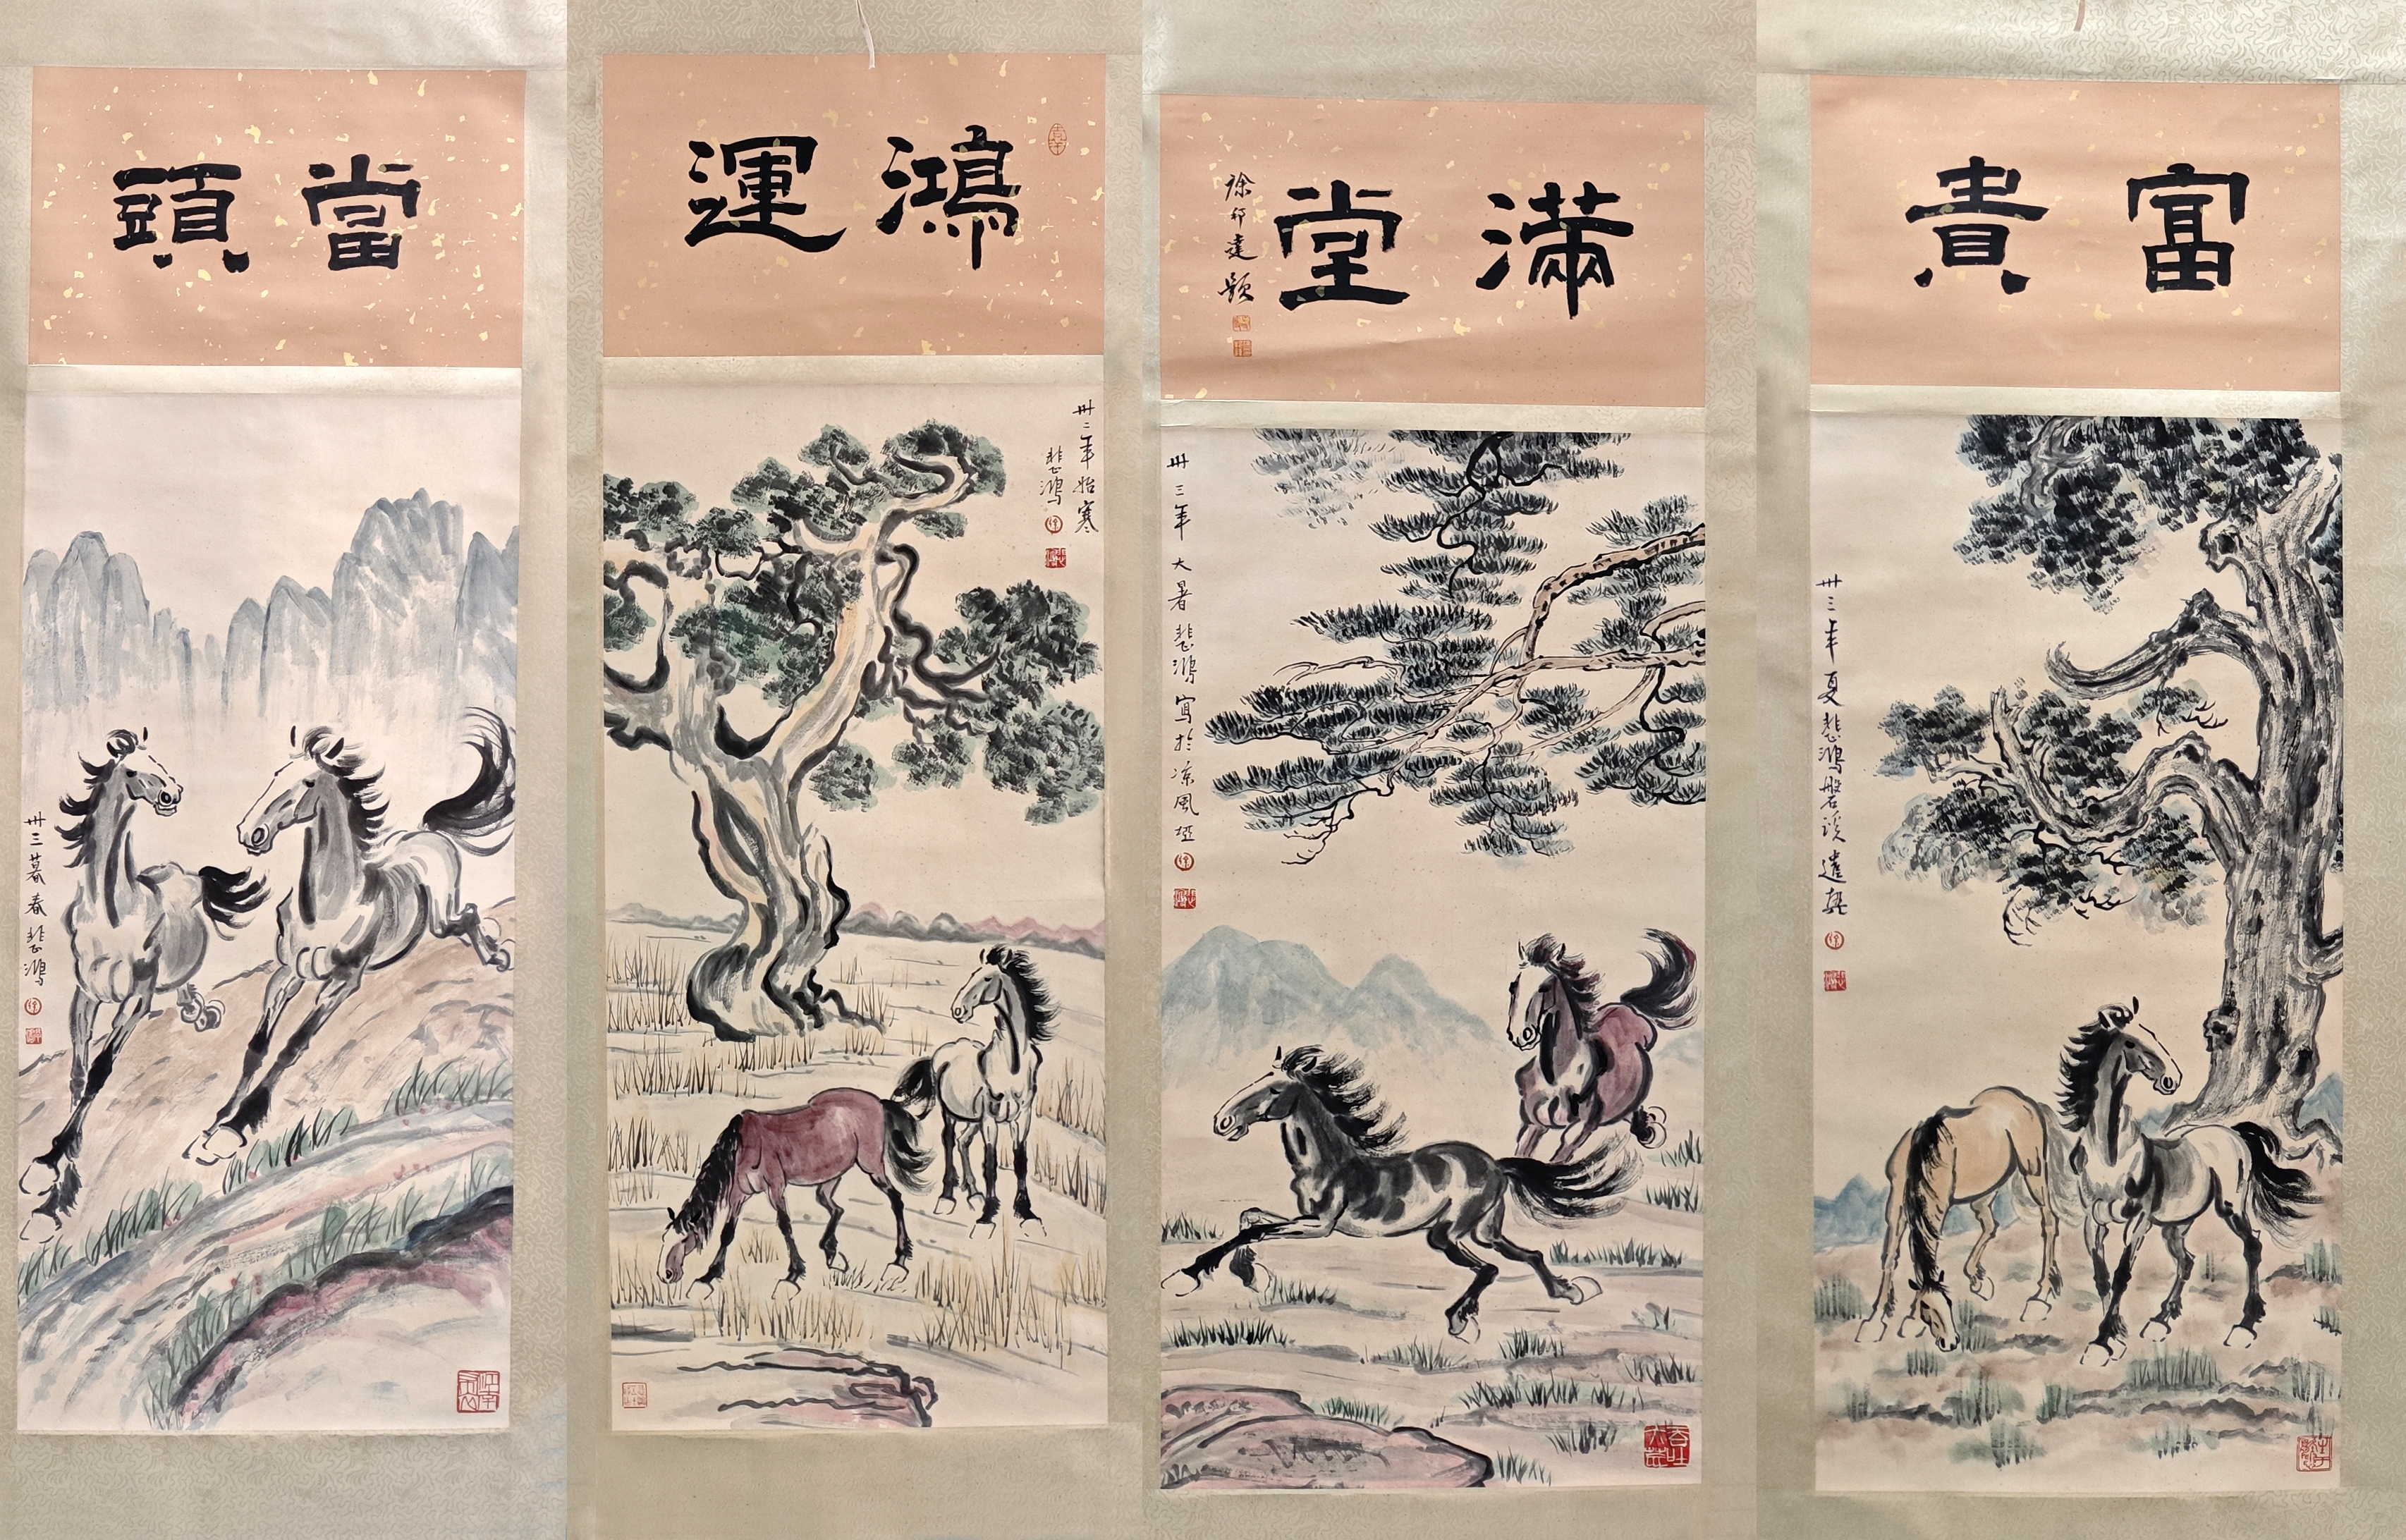 當頭
卅三暮春 悲鴻
鴻運
卅二年始寒
悲鴻
滿堂
徐邦達題
卅三年大暑悲鴻寫於凉風埡
富貴
卅三年夏悲鴻磐溪遣興